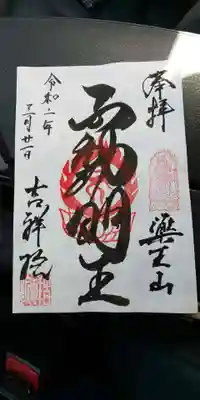 奉拝
藥王山
不動明王
令和二年
三月廿一日
吉祥院